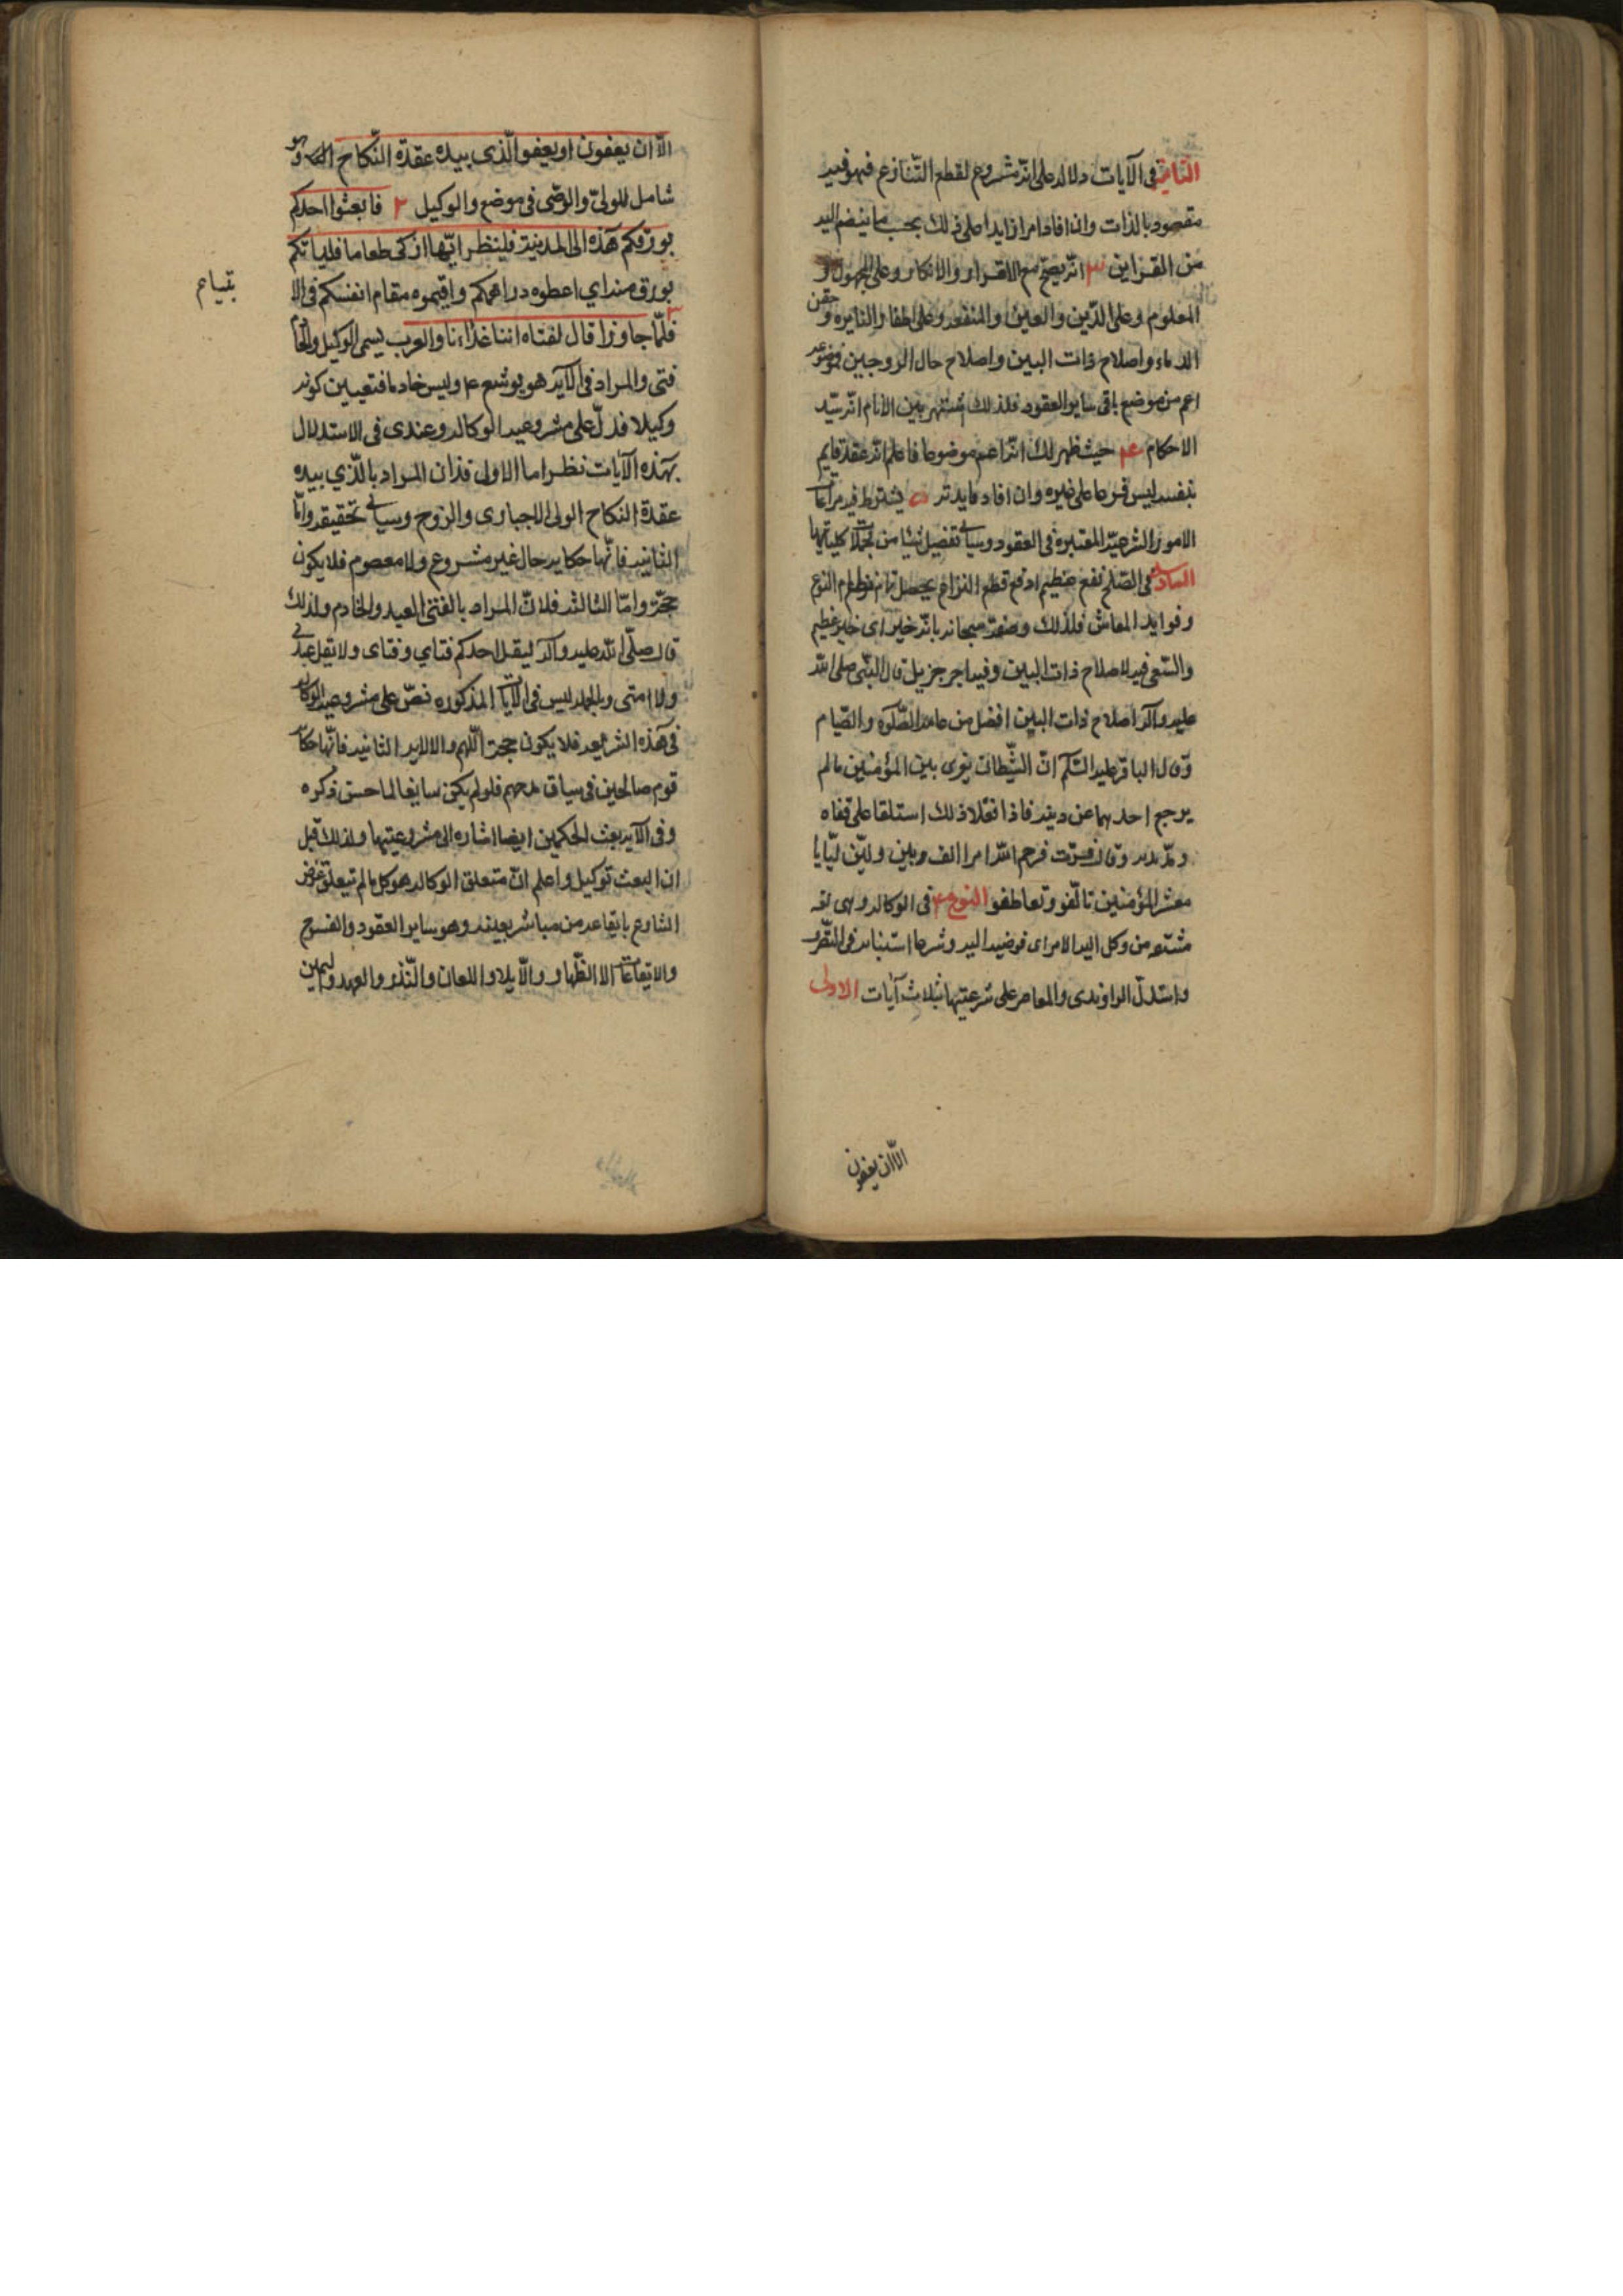 الثانية فى الآيات دلالة على انه مشروع لقطع التنازع فهو فيه
مقصود بالذات وان افاد امرا زايدا على ذلك بحسب ما ينضم اليه
من القراين ٣ انه يصح مع الاقرار والانكار وعلى المجهول و
المعلوم وعلى الدّين والعين والمنفعه وعلى اطفاء النايره وحقن
الدماء واصلاح ذات البين واصلاح حال الزوجين فموضوعه
اعم من موضع باقى ساير العقود فلذلك اشتهر بين الانام انه سيّد
الاحكام ع۴ حيث ظهر لك انه اعم موضوعا فاعلم انه عقد قايم
بنفسه ليس فرعا على غيره وان افاد فايدته ۵ يشترط فيه مراعات
الامور الشرعيّة المعتبرة فى العقود وسياتى تفصيل شيا من كلياتها
السادسة فى الصّلح نفع عظيم اذ مع قطع النزاع يحصل تمام نظام النوع
وفوايد المعاش فلذلك وصفه سبحانه بانه خير اى خير عظيم
والسّعى فيه لاصلاح ذات البين وفيه اجر جزيل قال النبّى صلى الله
عليه وآله اصلاح ذات البين افضل من عامة الصّلوة والصّيام
وقال الباقر عليه السّلم انّ الشّيطان يغرى بين المؤمنين مالم
يرجع احدهما عن دينه فاذا فعلا ذلك استلقا على قفاه
وتمدد وقال فزت فرحم الله امرا الف بين وليّن لنا يا
معشر المؤمنين تالّفو وتعاطفو النوع ۴ فى الوكالة وهى لغه
مشتقه من وكل اليه الامر اى فوضه اليه وشرعا استنابه فى التصّرف
واستدلّ الراوندى والمعاصر على شرعيتها بثلاث آيات الاولى
الّا ان يعفون
الاّ ان يعفون او يعفو الّذى بيده عقدة النّكاح وهو
شامل للولىّ والوصّى فى موضع والوكيل ٢ فابعثوا احدكم
بورقكم هذه الى المدينة فلينظر ايّها ازكى طعاما فلياتكم
بورق منه اي اعطوه دراهمكم واقيموه مقام انفسكم فى الا
بتياع
٣ فلمّا جاوزا قال لفتاه اتنا غداءنا والعرب يسمى الوكيل والخادم
فتى والمراد فى الآيه هو يوشع ع وليس خادما فتعيين كونه
وكيلا فدلّ على مشروعيه الوكاله وعندى فى الاستدلال
بهذه الآيات نظر اما الاولى فلان المراد بالّذي بيده
عقدة النكاح الولى الاجبارى والزوج وسياتى تحقيقه وامّا
الثانيه فانّها حكايه حال غير مشروع ولا معصوم فلا يكون
حجّة وامّا الثالثه فلانّ المراد بالفتى العبد والخادم ولذلك
قال صلّى الله عليه وآله ليقل احدكم فتاي وفتاى ولا يقل عبدى
ولا امتى وبالجمله ليس فى الآيات المذكوره نصّ على مشروعيه الوكاله
فى هذه الشريعه فلا يكون حجة اللهم الا الايه الثانيه فانّها حكاية
قوم صالحين فى سياق مدحهم فلو لم يكن سايغا لما حسن ذكره
وفى الآيه بعث الحكمين ايضا اشاره الى مشروعيتها ولذلك قيل
ان البعث توكيل واعلم انّ متعلق الوكاله هو كل ما لم يتعلق غرض
الشارع بايقاعه من مباشر بعينه وهو ساير العقود والفسوخ
والايقاعات الا الظّهار والايلا واللعان والنّذر والعهد واليمين